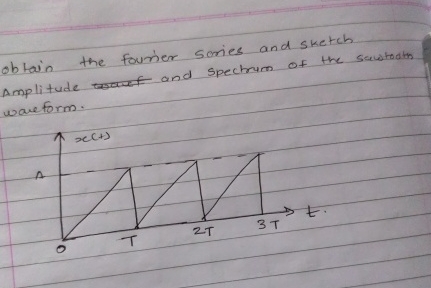 obtain the fourier series and sketch
Amplitude and spectrum of the sawtooth
waveform.
x(t)
A
0 T 2T 3T t.